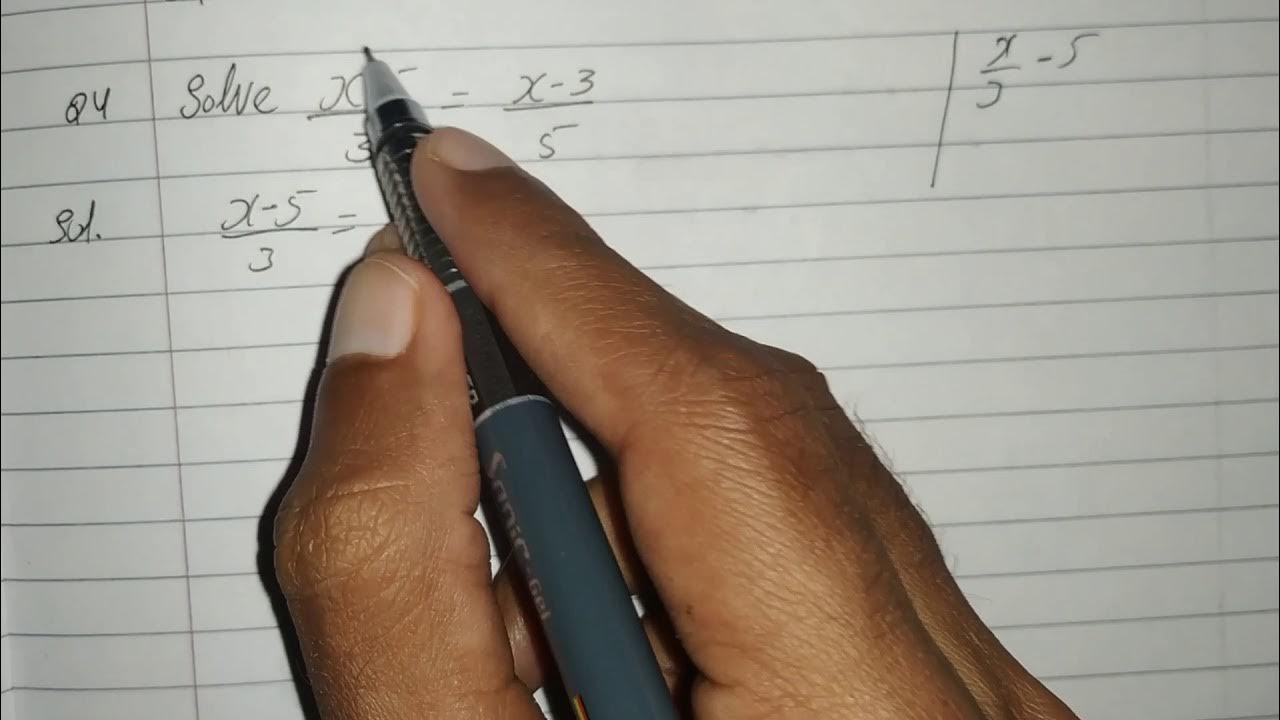 Q4 Solve x-5/3 = x-3/5
x/3 - 5
Sol. x-5/3 =
SoniC-Gel